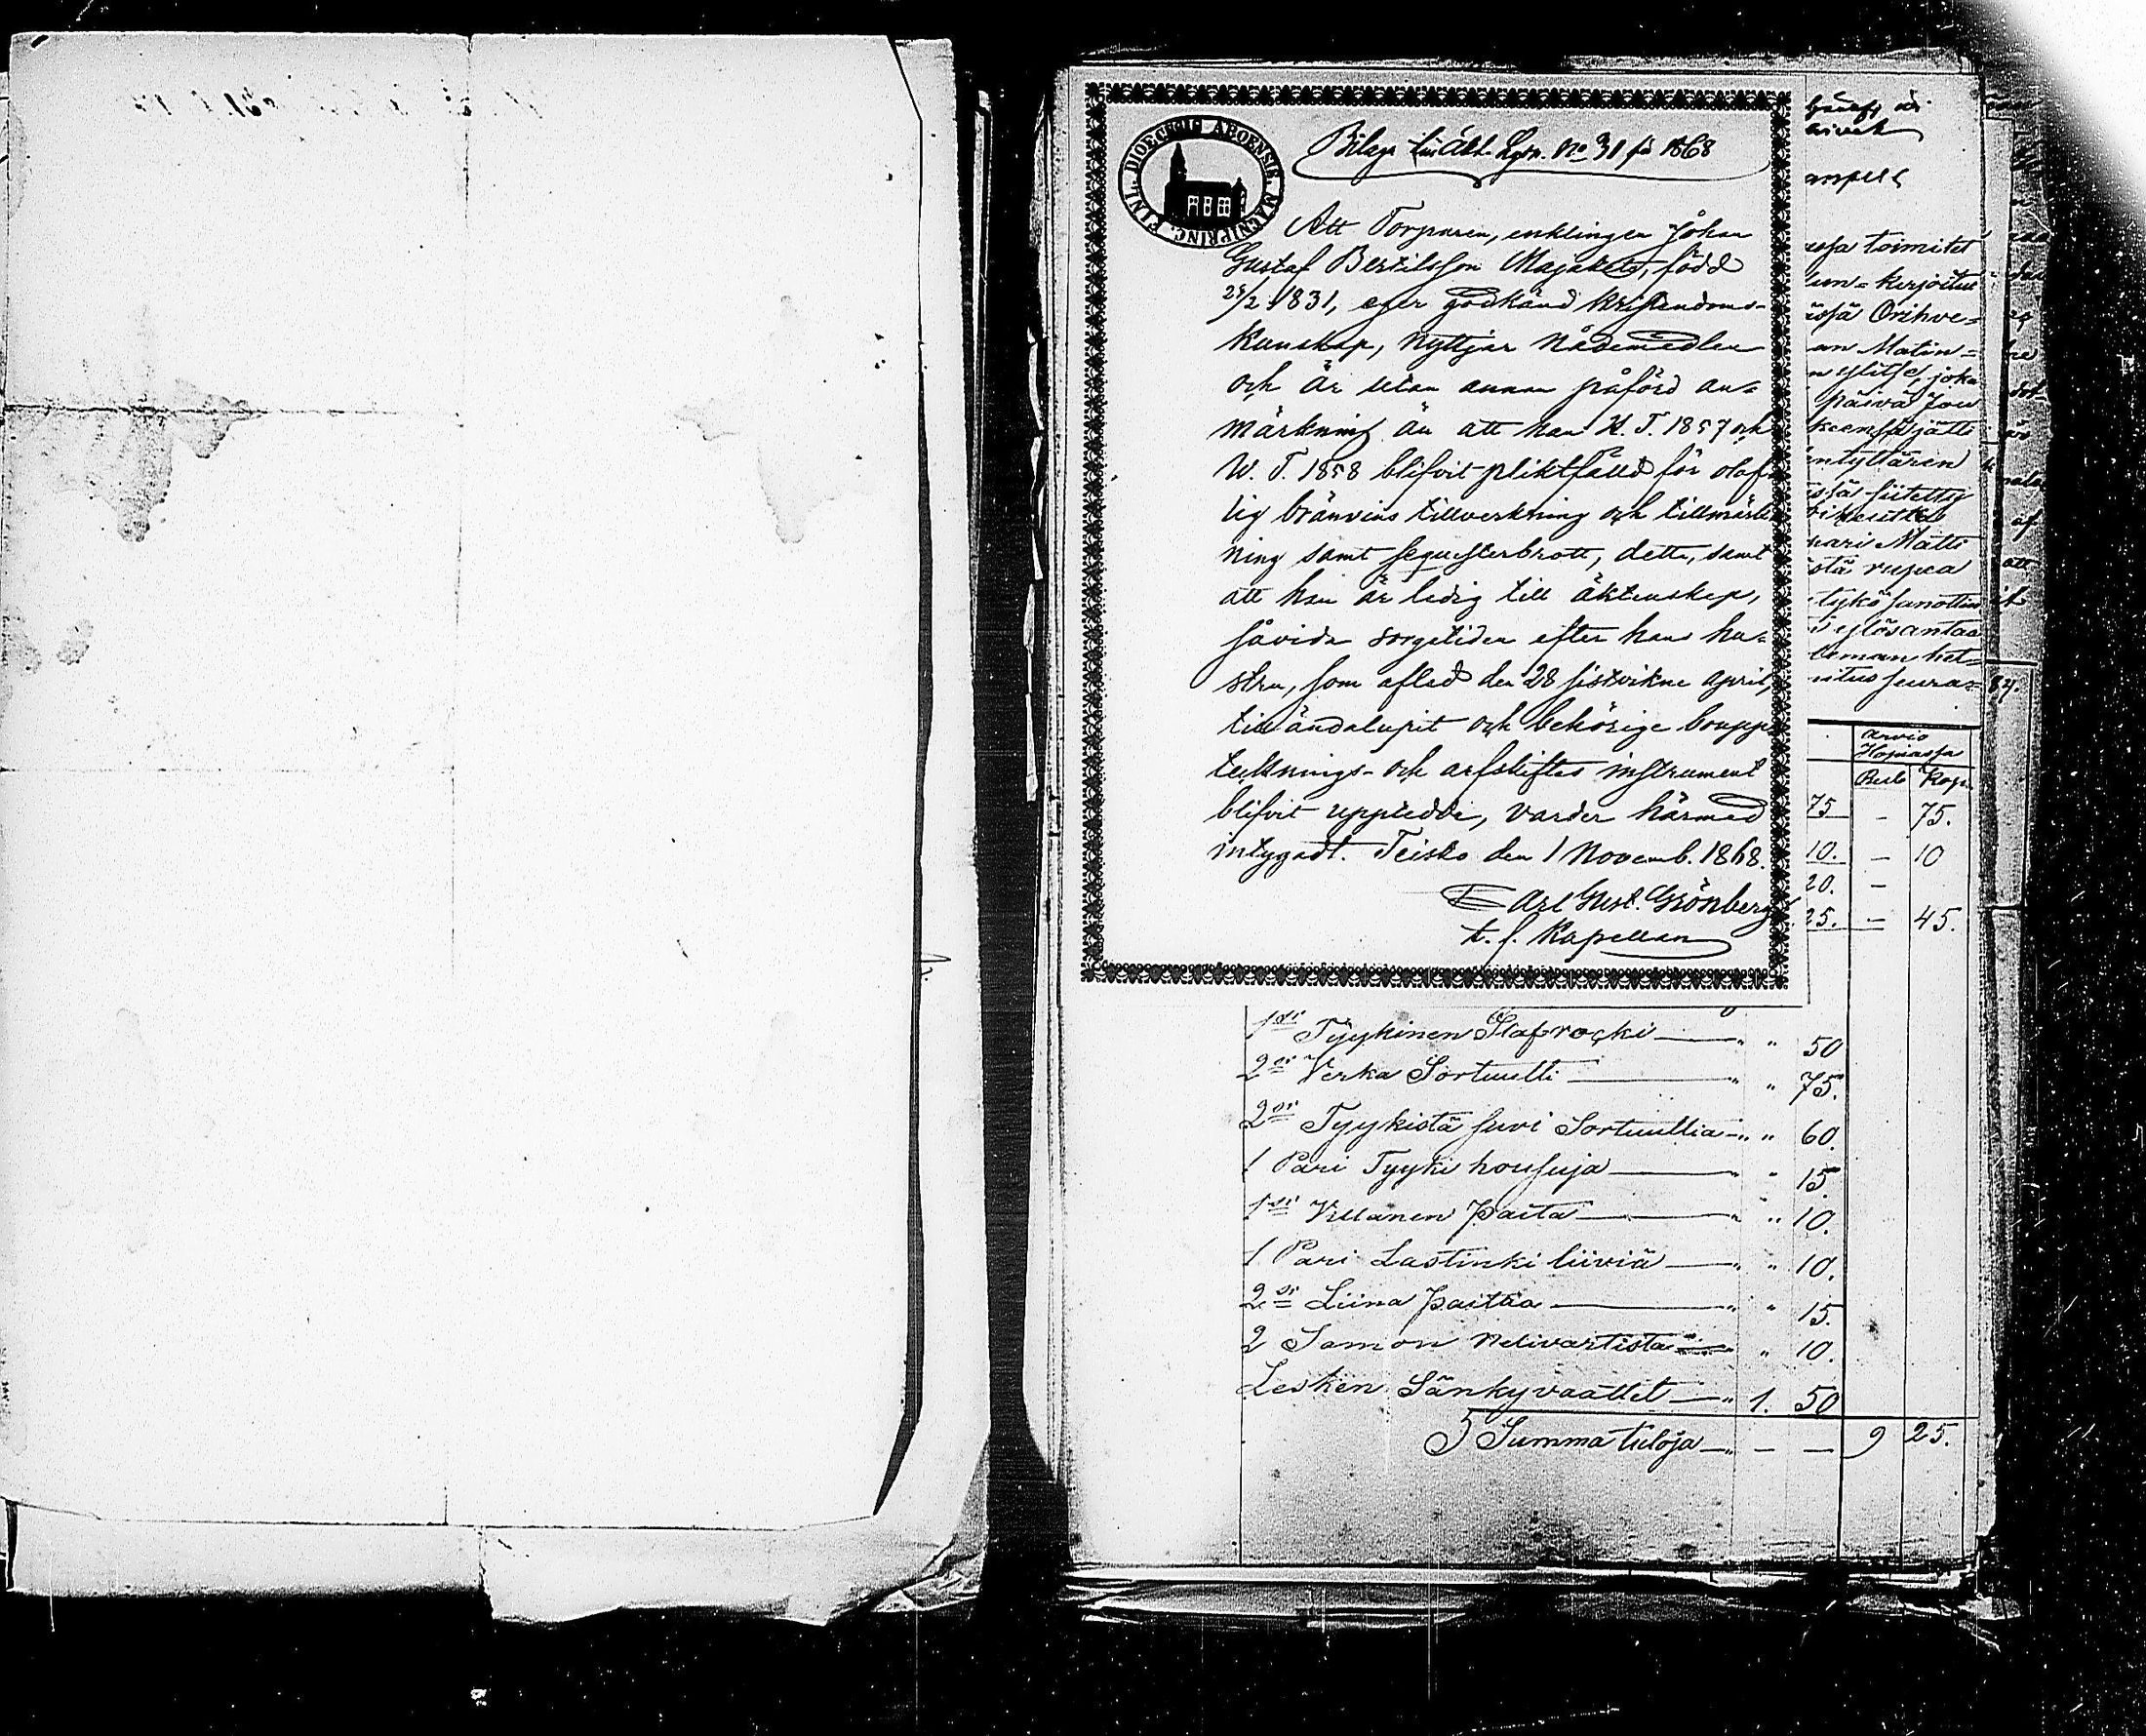 DIOECESIS ABOENSIS. MAGNI PRINC. FINL.
Bilaga till Äkt. Lysn. No 31 för 1868
Att Torparen, enklingen Johan
Gustaf Bertilsson Majaketo, född
25/2 1831, eger godkänd kristendoms-
kunskap, nyttjar nådemedlen
och är utan annan påförd an=
märkning än att han H. T. 1857 och
W. T. 1858 blifvit pliktfälld för olaf
lig bränvins tillverkning och tillmärk
ning samt sequesterbrott, detta, samt
att han är ledig till äktenskap,
såvida sorgetiden efter hans hu=
stru, som afled den 28 sistvikne april,
tilländalupit och behörige bouppt
tecknings- och arfskiftes instrument
blifvit uppredde, varder härmed
intygadt. Teisko den 1 Novemb. 1868.
Carl Gust. Grönberg
t. f. Kapellan
ssa toimitet
kirjoitus
Orihve=
an Matin=
joka
päivä
jätti
ntyttären
Matti
rupea
tykö sanottin
ulösantaa
leman het=
itus seura=
arvio
Hopiassa
Rubl Kop.
75 - 75.
10. - 10
20. -
25. - 45.
1si Tyykinen Slafrocki — " " 50
2si Verka Sortuulti — " " 75.
2si Tyykistä suvi Sortuultia — " " 60.
1 Pari Tyyki housuja — " " 15.
1si Villanen paita — " " 10.
1 Pari Lastinki liiviä — " " 10.
2si Liina paitaa — " " 15.
2 Samon Nelivartista — " " 10.
Lesken Sänkyvaattet — " 1. 50
Summa tuloja — " — — 9 25.